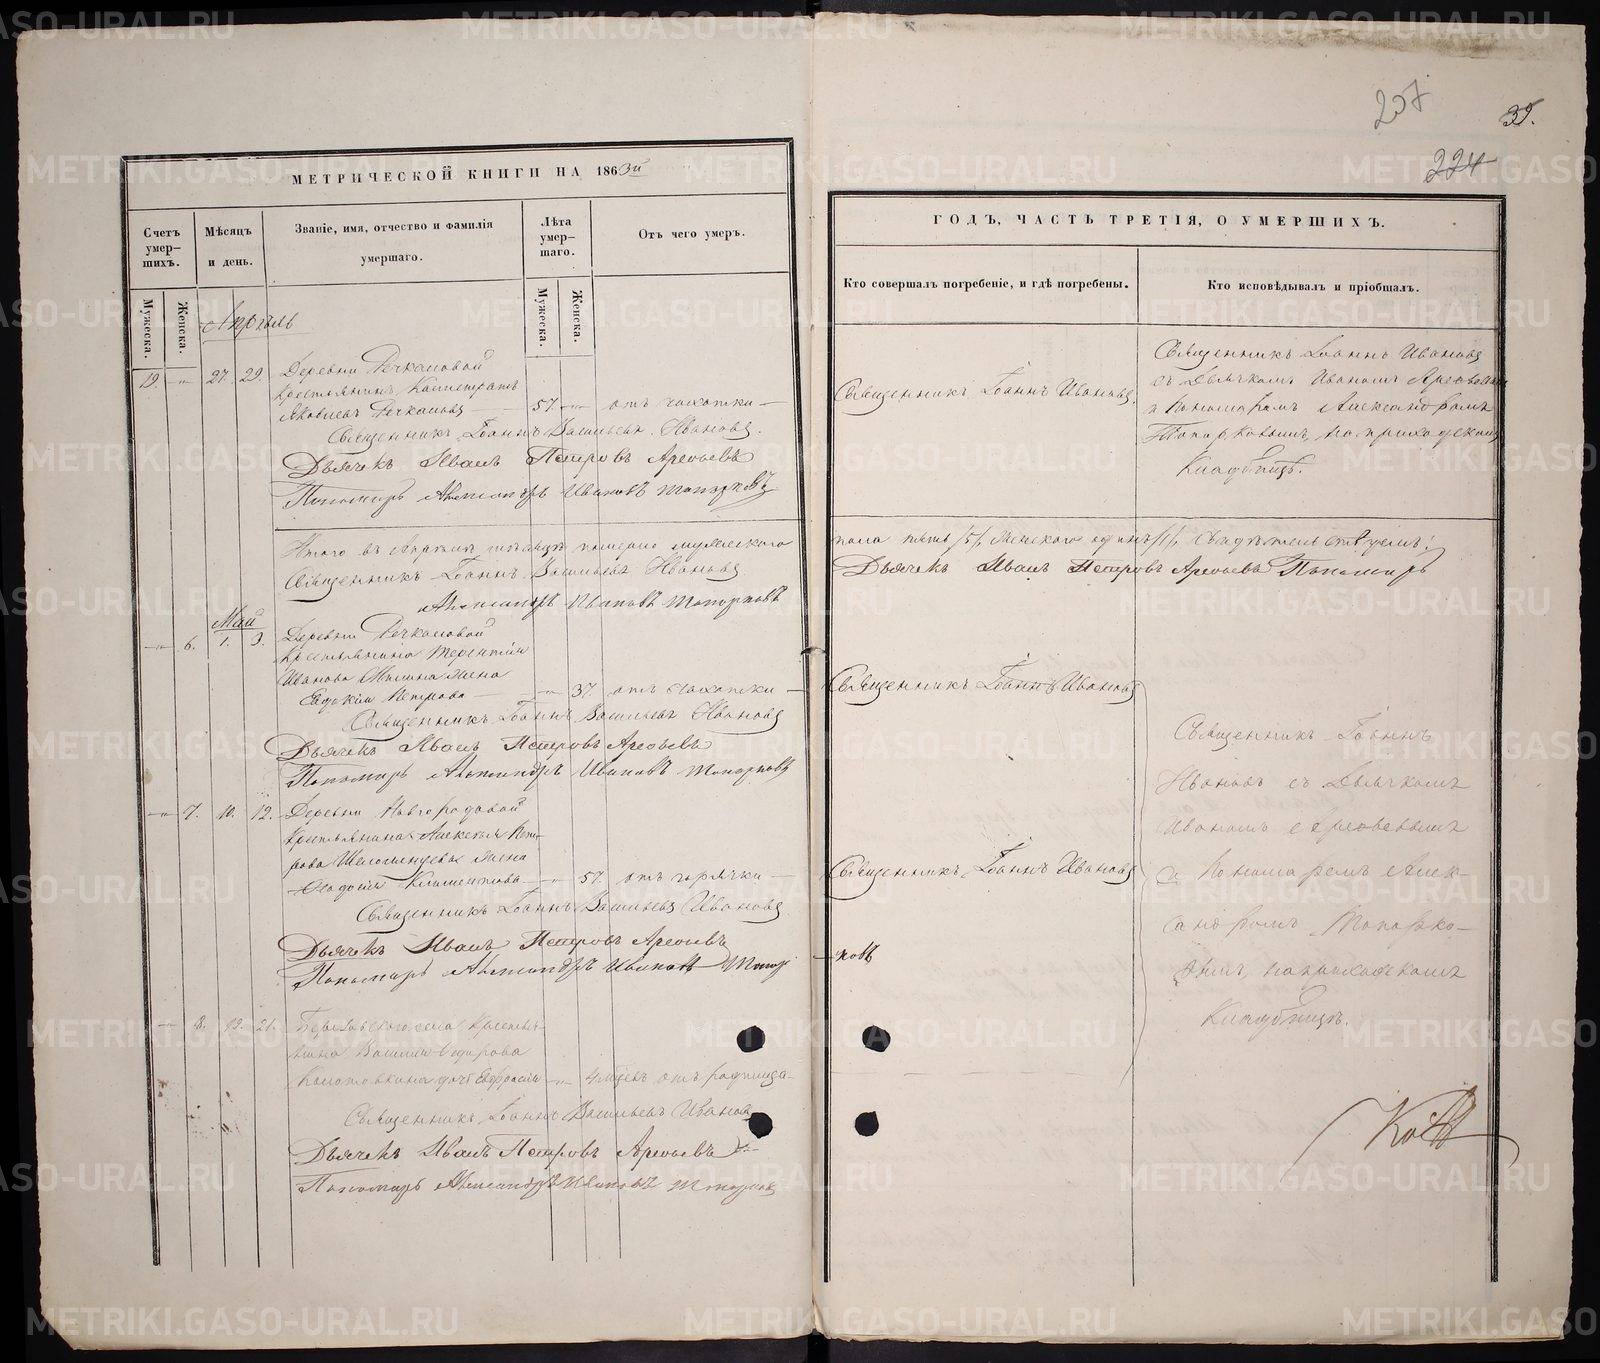 207
39.
224
МЕТРИЧЕСКОЙ КНИГИ НА 1863й
Счетъ умер-шихъ.
Мѣсяцъ и день.
Званіе, имя, отчество и фамилія умершаго.
Лѣта умер-шаго.
Отъ чего умеръ.
Мужеска.
Женска.
Мужеска.
Женска.
Апрѣль
19 -"- 27. 29. Деревни Речкаловой
крестьянинъ
Яковлевъ Речкаловъ 57. -"- отъ чахотки
Священникъ Іоаннъ Васильевъ Ивановъ.
Дьячекъ Иванъ Петровъ Арефьевъ
Пономарь Александръ Ивановъ Топорковъ
Итого въ Апрѣлѣ мѣсяцѣ померло мужескаго
Священникъ Іоаннъ Васильевъ Ивановъ
Александръ Ивановъ Топорковъ
Май
-"- 6. 1. 3. Деревни Речкаловой
Крестьянина Терентія
Иванова жена
Евдокія Петрова -"- 37. отъ чахотки
Священникъ Іоаннъ Васильевъ Ивановъ
Дьячекъ Иванъ Петровъ Арефьевъ
Пономарь Александръ Ивановъ Топорковъ
-"- 7. 10. 12. Деревни
Крестьянина Алексѣя Пет-
рова жена
Климентова -"- 57. отъ горячки
Священникъ Іоаннъ Васильевъ Ивановъ
Дьячекъ Иванъ Петровъ Арефьевъ
Пономарь Александръ Ивановъ Топор
-"- 8. 19. 21. села Кресть-
янина Василія
дочь Евфросинія -"- 4 мѣсяц. отъ родимца
Священникъ Іоаннъ Васильевъ Ивановъ
Дьячекъ Иванъ Петровъ Арефьевъ
Пономарь Александръ Ивановъ Топорков
ГОДЪ, ЧАСТЬ ТРЕТІЯ, О УМЕРШИХЪ.
Кто совершалъ погребеніе, и гдѣ погребены.
Кто исповѣдывалъ и пріобщалъ.
Священникъ Іоаннъ Ивановъ.
Священникъ Іоаннъ Ивановъ
съ Дьячкомъ Иваномъ Арефьевымъ
и Пономаремъ Александромъ
Топорковымъ, на приходскомъ
Кладбищѣ.
пола пять /5/, Женскаго одинъ /1/,
Дьячекъ Иванъ Петровъ Арефьевъ Пономарь
Священникъ Іоаннъ Ивановъ
Священникъ Іоаннъ Ивановъ
ковъ
Священникъ Іоаннъ
Ивановъ съ Дьячкомъ
Иваномъ Арефьевымъ
и Пономаремъ Алек-
сандромъ Топорко-
вымъ, на приходскомъ
Кладбищѣ.
METRIKI.GASO-URAL.RU